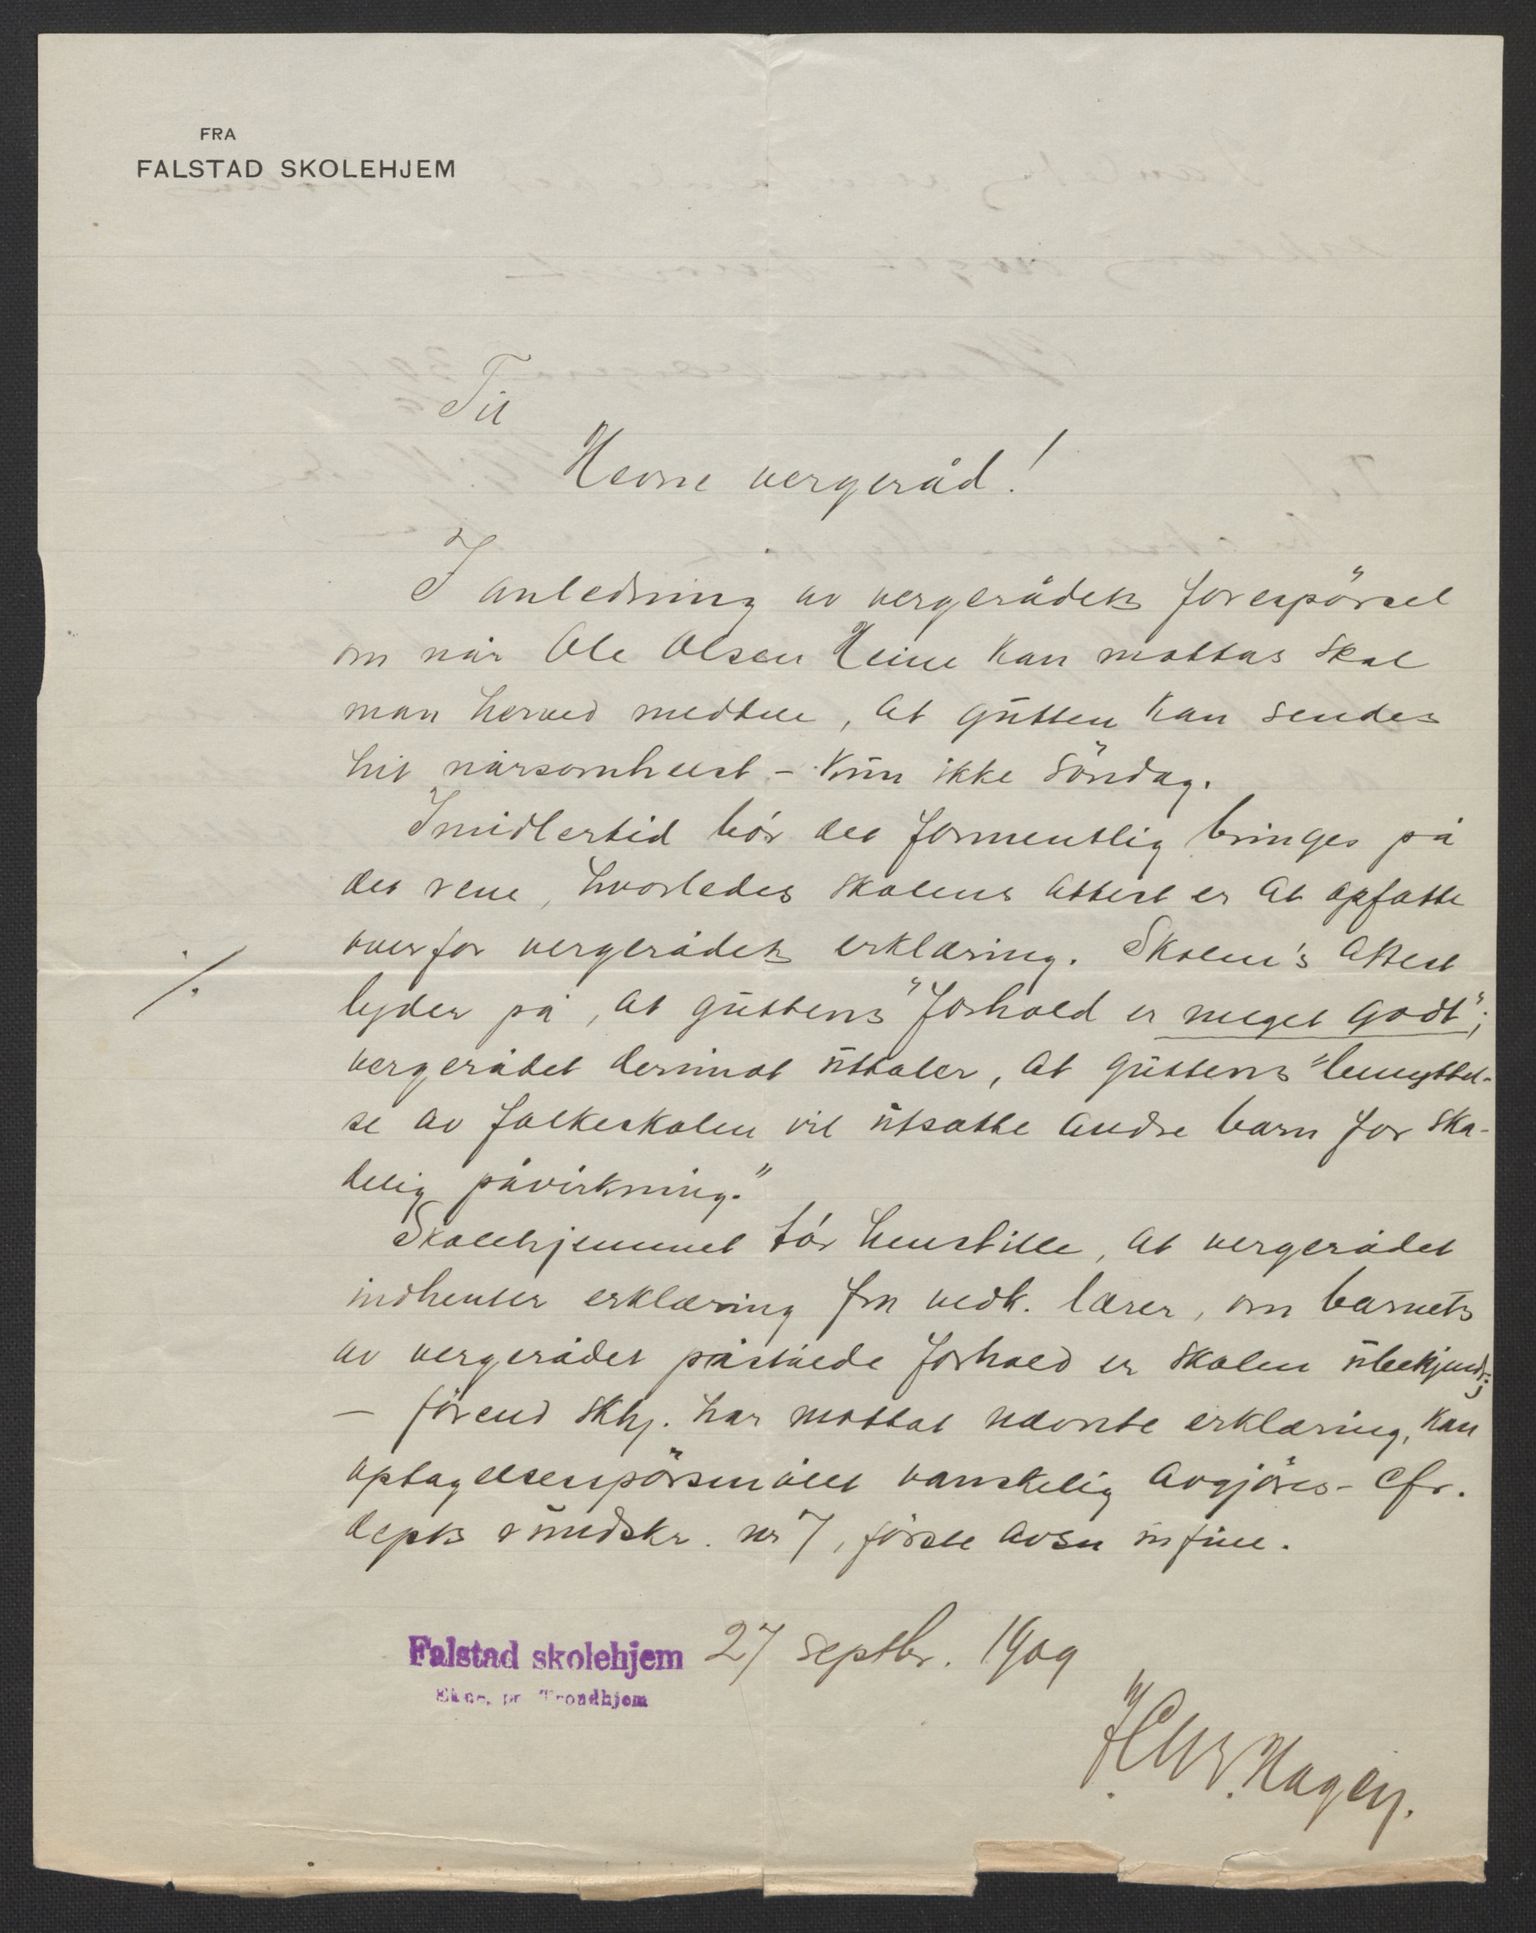 FRA
FALSTAD SKOLEHJEM
Til
Hevne vergeråd!
I anledning av vergerådets forespörsel
om når Ole Olsen Heine kan mottas skal
man herved meddele, at gutten kan sendes
hit nårsomhelst – kun ikke söndag.
Imidlertid bör det formentlig bringes på
det rene, hvorledes skolens attest er at opfatte
overfor vergerådets erklæring. Skolen's attest
./.
lyder på, at guttens "forhold er meget godt";
vergerådet derimot uttaler, at guttens "benyttel-
se av folkeskolen vil utsatte andre barn for ska-
delig påvirkning."
Skolehjemmet tör henstille, at vergerådet
indhenter erklæring fra vedk. lærer, om barnets
av vergerådet påståede forhold er skolen ubekjendt;
– förend skhj. har mottat nævnte erklæring, kan
optagelsesspörsmålet vanskelig avgjöres – cfr.
depts rundskr. nr 7, förste avsn in fine.
Falstad skolehjem 27 septbr. 1909
Ekne, pr Trondhjem
H. Chr. Hagen.